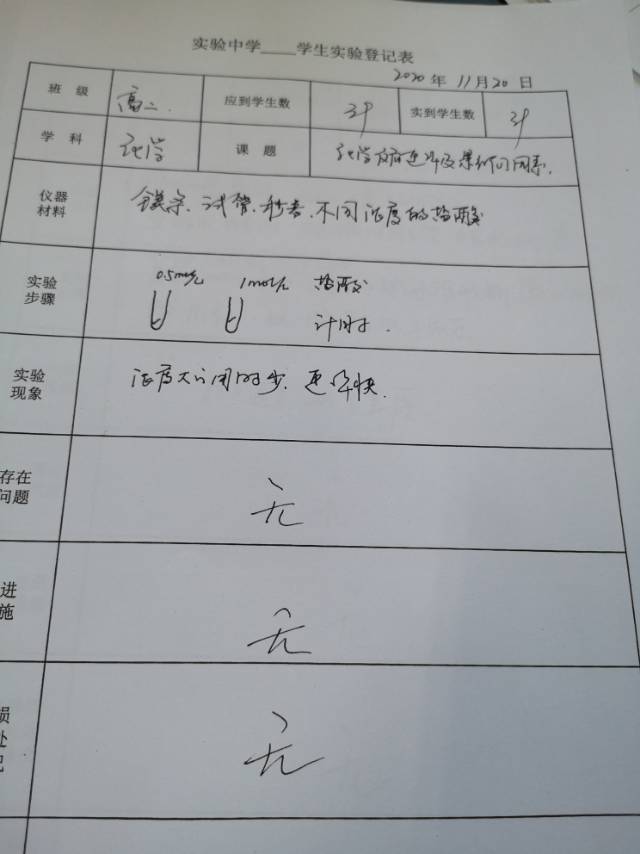 实验中学____学生实验登记表
2020年11月20日
班 级 高二. 应到学生数 实到学生数
学 科 化学 课 题 化学反应速率及影响因素.
仪器材料 镁条、试管、秒表、不同浓度的盐酸
实验步骤 0.5mol/L 1mol/L 盐酸
计时.
实验现象 浓度大 用时少. 速率快.
存在问题 无
进 施 无
损 处 无